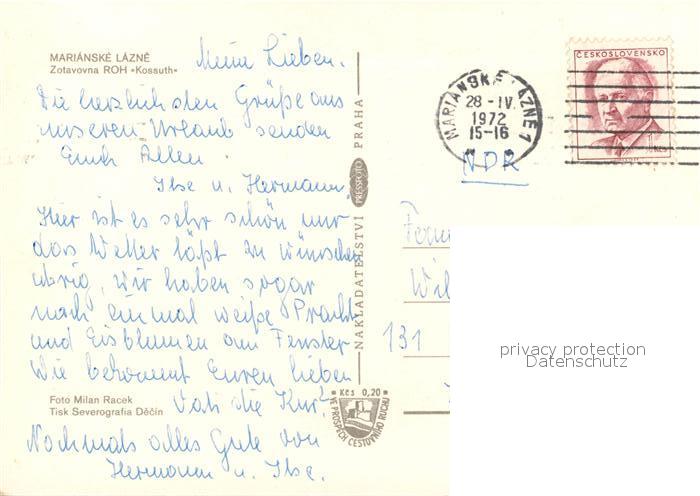 MARIÁNSKÉ LÁZNĚ
Zotavovna ROH «Kossuth»
Meine Lieben.
Die herzlichsten Grüße aus
unserem Urlaub senden
Euch Allen
Ilse u. Hermann
Hier ist es sehr schön nur
das Wetter läßt zu wünschen
übrig, wir haben sogar
noch einmal weiße Pracht
und Eisblumen am Fenster
Wie bekommt Euren lieben
Vati die Kur?
Nochmals alles Gute von
Hermann u. Ilse.
Foto Milan Racek
Tisk Severografia Děčín
NAKLADATELSTVÍ PRESSFOTO PRAHA
Kčs 0,20
VE PROSPĚCH CESTOVNÍHO RUCHU
MARIÁNSKÉ LÁZNĚ 1
28 -IV.
1972
15-16
ČESKOSLOVENSKO
1 Kčs
NDR
Fam
Wil
131
privacy protection
Datenschutz